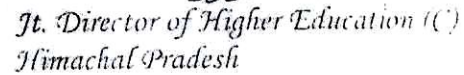 Jt. Director of Higher Education (C)
Himachal Pradesh